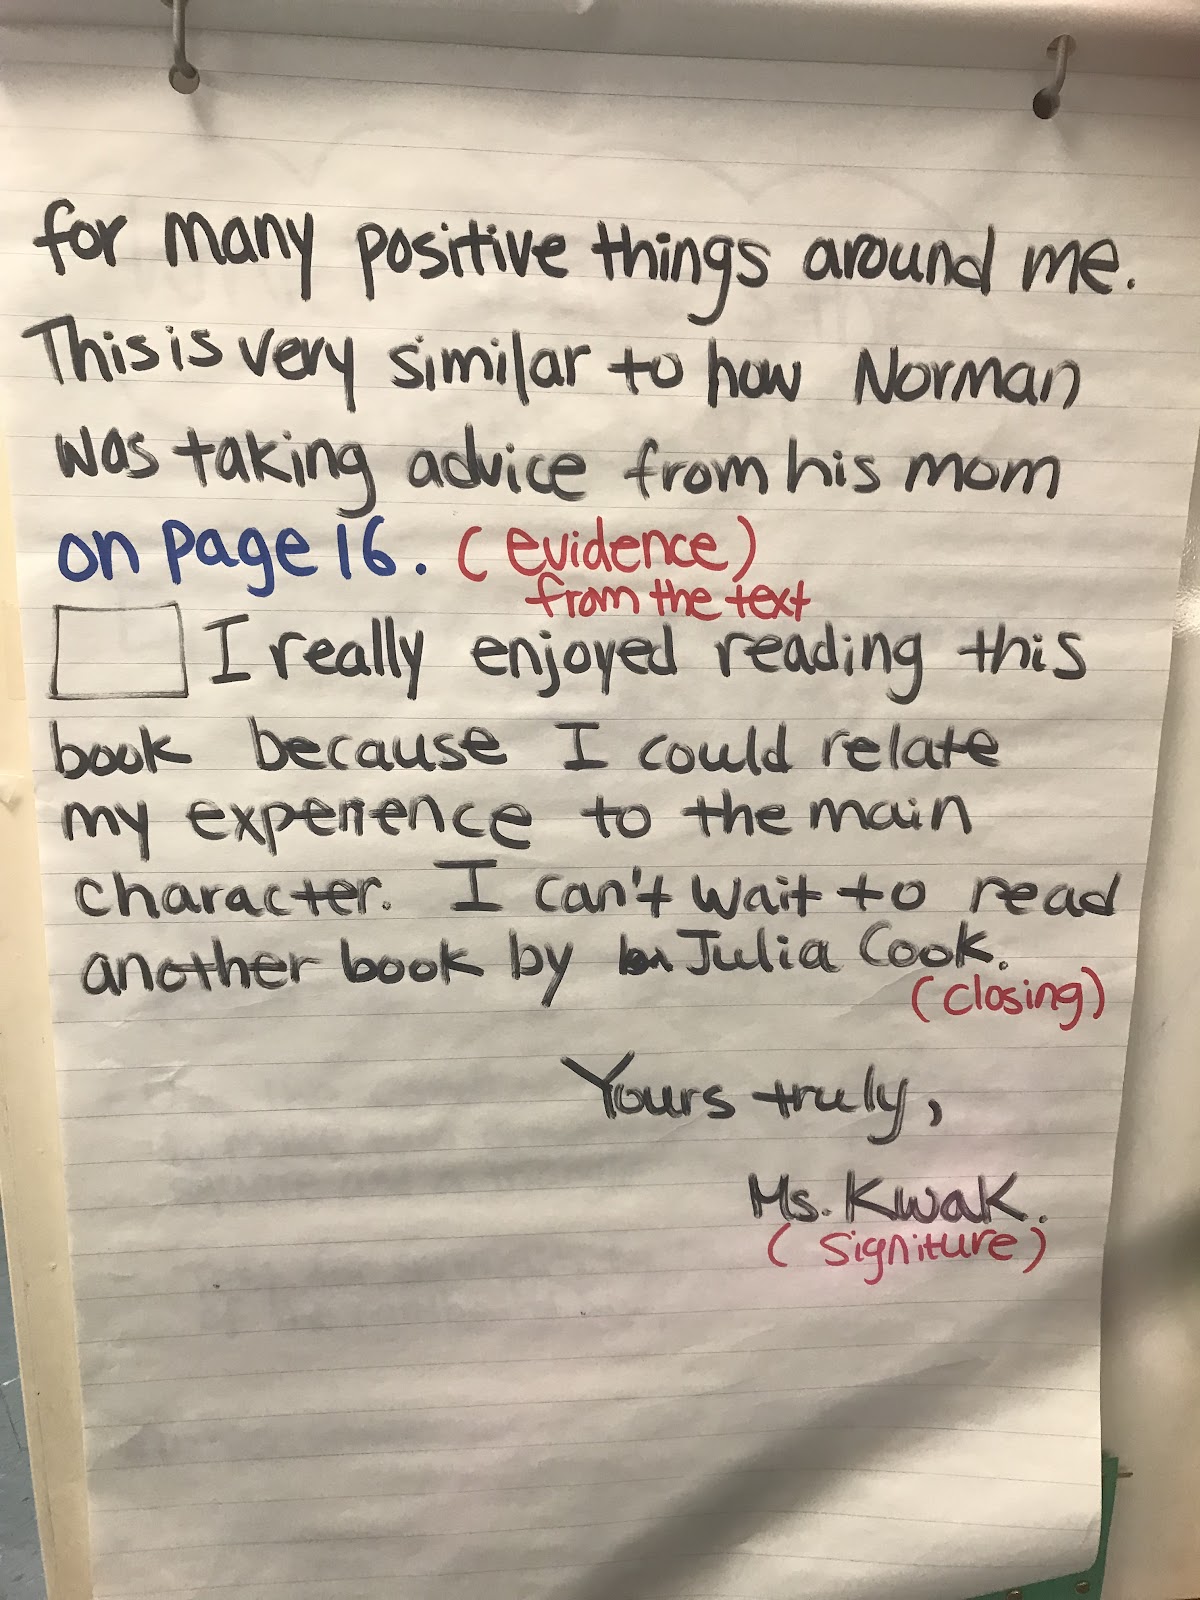 for many positive things around me.
This is very similar to how Norman
was taking advice from his mom
on page 16. (evidence)
from the text
I really enjoyed reading this
book because I could relate
my experience to the main
character. I can't wait to read
another book by Julia Cook.
(closing)
Yours truly,
Ms. Kwak.
(signiture)